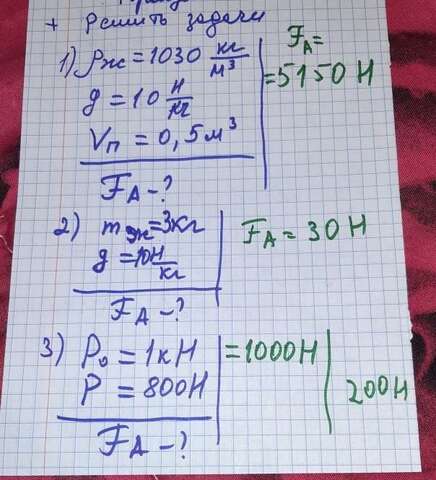 + Решить задачи
1) ρж = 1030 кг/м³
g = 10 Н/кг
Vп = 0,5 м³
FA - ?
FA =
= 5150 Н
2) mж = 3кг
g = 10Н/кг
FA - ?
FA = 30 Н
3) P₀ = 1кН = 1000Н
P = 800Н
FA - ?
200Н